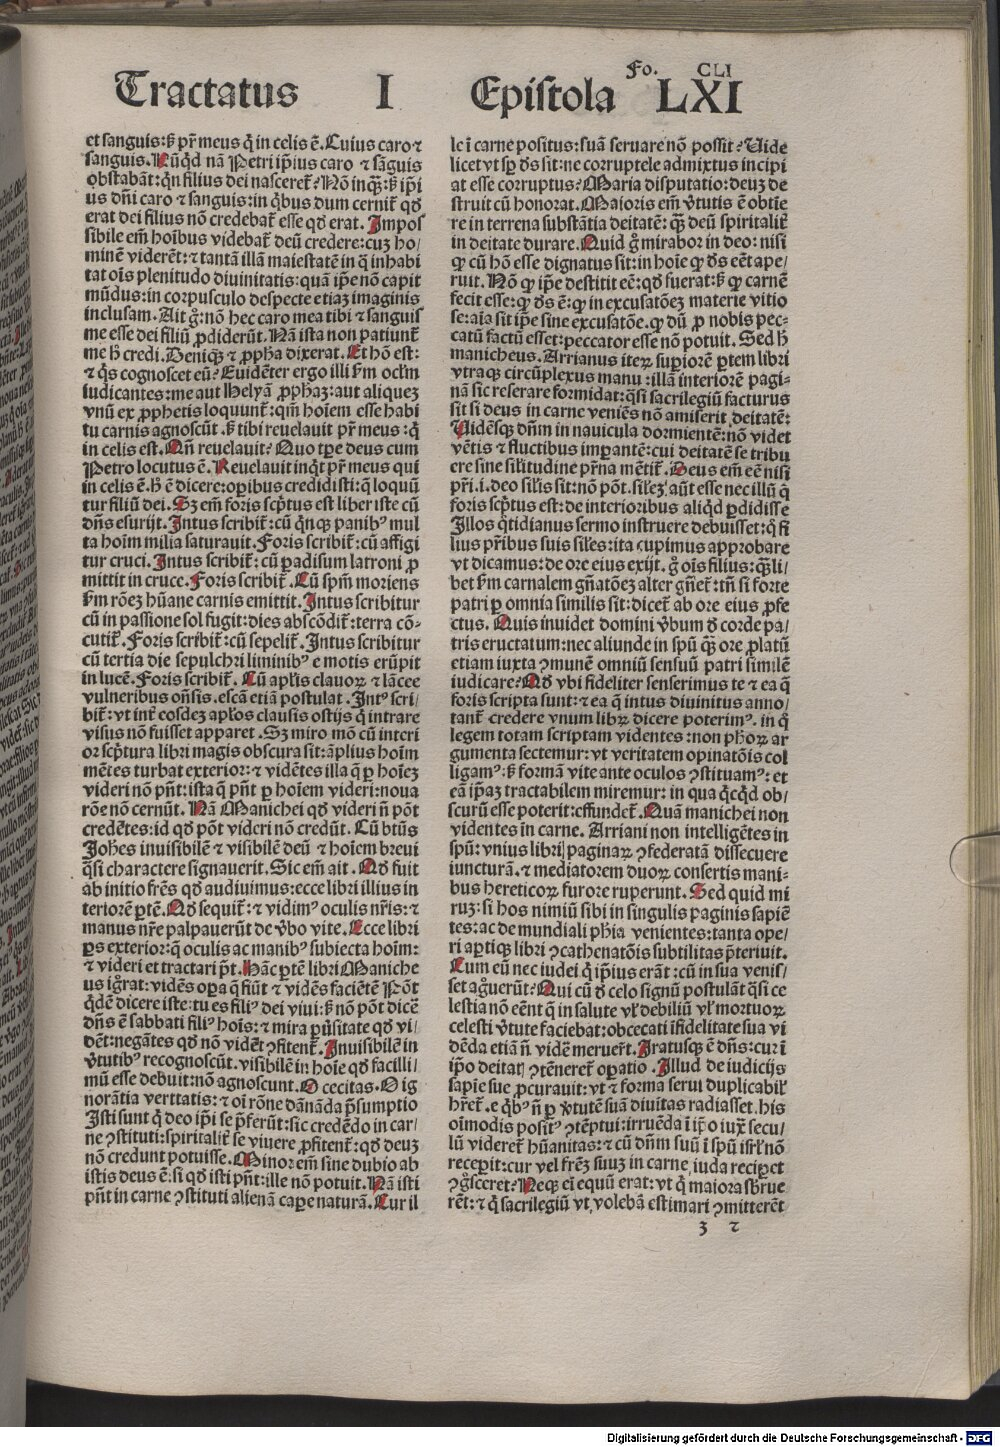 Tractatus I Epistola LXI
Fo. CLI
et sanguis: sꝫ pr̄ meus q̄ in celis ē. Cuius caro ⁊
sanguis. Nūqd̄ nā Petri ip̄ius caro ⁊ sāguis
obstabāt: q̄n filius dei nasceret̄? Nō inqꝫ: sꝫ ip̄i
us dn̄i caro ⁊ sanguis: in qͥbus dum cernit̄ qd̄
erat dei filius nō credebat̄ esse qd̄ erat. Impos
sibile em̄ hoībus videbat̄ deū credere: cuꝫ ho/
minē viderēt: ⁊ tantā illā maiestatē in q̄ inhabi
tat oīs plenitudo diuinitatis: quā ip̄e nō capit
mūdus: in corpusculo despecte etiaꝫ imaginis
inclusam. Ait g̊: nō hec caro mea tibi ⁊ sanguis
me esse dei filiū ꝓdiderūt. Nā ista non patiunt̄
me h̄ credi. Deniqꝫ ⁊ ꝓpha dixerat. Et hō est:
⁊ qͥs cognoscet eū? Euidēter ergo illi ẜm oc̄lm
iudicantes: me aut Helyā ꝓphaꝫ: aut aliqueꝫ
vnū ex ꝓphetis loquunt̄: qm̄ hoīem esse habi
tu carnis agnoscūt. sꝫ tibi reuelauit pr̄ meus: q̄
in celis est. Qn̄ reuelauit? Quo tꝑe deus cum
Petro locutus ē. Reuelauit inqͥt pr̄ meus qui
in celis ē. h̄ ē dicere: oꝑibus credidisti: q̄ loquū
tur filiū dei. Sꝫ em̄ foris scp̄tus est liber iste cū
dn̄s esurijt. Intus scribit̄: cū qͥnqꝫ panibꝰ mul
ta hoīm milia saturauit. Foris scribit̄: cū affigi
tur cruci. Intus scribit̄: cū ꝑadisum latroni ꝓ
mittit in cruce. Foris scribit̄. Cū sp̄m moriens
ẜm rōeꝫ hūane carnis emittit. Intus scribitur
cū in passione sol fugit: dies abscōdit̄: terra cō-
cutit̄. Foris scribit̄: cū sepelit̄. Intus scribitur
cū tertia die sepulchri liminibꝰ e motis erūpit
in lucē. Foris scribit̄. Cū apl̄is clauoꝝ ⁊ lācee
vulneribus on̄sis. escā etiā postulat. Intꝰ scri/
bit̄: vt int̄ eosdeꝫ apl̄os clausis ostijs q̄ intrare
visus nō fuisset apparet. Sꝫ miro mō cū interi
or scp̄tura libri magis obscura sit: āplius hoīm
mētes turbat exterior: ⁊ vidētes illa q̄ ꝑ hoīeꝫ
videri nō pn̄t: ista q̄ pn̄t ꝑ hoīem videri: noua
rōe nō cernūt. Nā Manichei qd̄ videri n̄ pōt
credētes: id qd̄ pōt videri nō credūt. Cū btūs
Joh̄es inuisibilē ⁊ visibilē deū ⁊ hoīem breui
q̄si charactere signauerit. Sic em̄ ait. Qd̄ fuit
ab initio fr̄es qd̄ audiuimus: ecce libri illius in
teriorē ꝑtē. Qd̄ sequit̄: ⁊ vidimꝰ oculis nr̄is: ⁊
manus nr̄e palpauerūt de v̄bo vite. Ecce libri
ꝑs exterior: q̄ oculis ac manibꝰ subiecta hoīm:
⁊ videri et tractari p̄t. Hāc ꝑtē libri Maniche
us igr̄at: vidēs oꝑa q̄ fiūt ⁊ vidēs faciētē Pōt
qͥdē dicere iste: tu es filiꝰ dei viui: sꝫ nō pōt dicē
dn̄s ē sabbati filiꝰ hoīs: ⁊ mira ꝑūsitate qd̄ vi/
dēt: negātes qd̄ nō vidēt ꝯfitent̄. Inuisibilē in
v̄tutibꝰ recognoscūt. visibilē in hoīe qd̄ facilli/
mū esse debuit: nō agnoscunt. O cecitas. O ig
norātia verttatis: ⁊ oī rōne dānāda p̄sumptio
Isti sunt q̄ deo ip̄i se p̄ferūt: sic credēdo in car/
ne ꝯstituti: spiritalit̄ se viuere ꝓfitent̄: qd̄ deuꝫ
nō credunt potuisse. Minor em̄ sine dubio ab
istis deus ē: si qd̄ isti pn̄t: ille nō potuit. Nā isti
pn̄t in carne ꝯstituti alienā caꝑe naturā. Cur il
le ī carne positus: suā seruare nō possit? Vide
licet vt sꝑ d̄s sit: ne corruptele admixtus incipi
at esse corruptus? Maria disputatio: deuꝫ de
struit cū honorat. Maioris em̄ v̄tutis ē obtīe
re in terrena substātia deitatē: qꝫ deū spiritalit̄
in deitate durare. Quid g̊ mirabor in deo: nisi
ꝙ cū hō esse dignatus sit: in hoīe ꝙ d̄s eēt aꝑe/
ruit. Nō ꝙ ip̄e destitit eē: qd̄ fuerat: sꝫ ꝙ carnē
fecit esse: ꝙ d̄s ē: ꝙ in excusatōeꝫ materie vitio
se: aīa sit ip̄e sine excusatōe. ꝙ dū ꝓ nobis pec-
catū factū esset: peccator esse nō potuit. Sed h̄
manicheus. Arrianus iteꝝ suꝑiorē ꝑtem libri
vtraqꝫ circūplexus manu: illā interiorē pagi-
nā sic reserare formidat: q̄si sacrilegiū facturus
sit si deus in carne veniēs nō amiserit deitatē:
Vidēsqꝫ dn̄m in nauicula dormientē: nō videt
vētis ⁊ fluctibus imꝑantē: cui deitatē se tribu
ere sine sil̄itudine pr̄na mētit̄. Deus em̄ eē nisi
pr̄i. i. deo sil̄is sit: nō pōt. sil̄eꝫ aūt esse nec illū q̄
foris scp̄tus est: de interioribus aliqd̄ ꝑdidisse
Illos qͥtidianus sermo instruere debuisset: q̄ fi
lius pr̄ibus suis sil̄es: ita cupimus approbare
vt dicamus: de ore eius exijt. g̊ oīs filius: qꝫli/
bet ẜm carnalem gn̄atōeꝫ alter gn̄et̄: tn̄ si forte
patri ꝑ omnia similis sit: dicet̄ ab ore eius ꝓfe
ctus. Quis inuidet domini v̄bum d̄ corde pa/
tris eructatum: nec aliunde in spū qꝫ ore ꝓlatū
etiam iuxta ꝯmunē omniū sensuū patri similē
iudicare? Qd̄ vbi fideliter senserimus te ⁊ ea q̄
foris scripta sunt: ⁊ ea q̄ intus diuinitus anno/
tant̄ credere vnum libꝝ dicere poterimꝰ. in q̄
legem totam scriptam videntes: non ph̄oꝝ ar
gumenta sectemur: vt veritatem opinatōis col
ligamꝰ: sꝫ formā vite ante oculos ꝯstituamꝰ: et
eā ip̄aꝫ tractabilem miremur: in qua qͥcqd̄ ob/
scurū esse poterit: effundet̄. Quā manichei non
videntes in carne. Arriani non intelligētes in
spū: vnius libri paginaꝝ ꝯfederatā dissecuere
iuncturā. ⁊ mediatorem duoꝝ consertis mani-
bus hereticoꝝ furore ruperunt. Sed quid mi
ruꝫ: si hos nimiū sibi in singulis paginis sapiē
tes: ac de mundiali ph̄ia venientes: tanta oꝑe/
ri aꝑtiqꝫ libri ꝯcathenatōis subtilitas p̄teriuit.
Cum eū nec iudei q̄ ip̄ius erāt: cū in sua venis/
set ag̊uerūt? Qui cū d̄ celo signū postulāt q̄si ce
lestia nō eēnt q̄ in salute vl̄ debiliū vl̄ mortuoꝝ
celesti v̄tute faciebat: obcecati īfidelitate sua vi
dēda etiā n̄ vidē meruer̄t. Iratusqꝫ ē dn̄s: cur ī
ip̄o deitaꝭ ꝯtēneret̄ oꝑatio. Illud de iudicijs
sapīe sue ꝓcurauit: vt ⁊ forma serui duplicabil̄
hr̄et̄. e qͥbꝰ n̄ ꝑ v̄tutē suā diuitas radiasset. his
oīmodis positꝰ ꝯtēptui: irruēda ī ip̄o iuxͣ secu/
lū videret̄ hūanitas: ⁊ cū dn̄m suū ī spū isr̄l nō
receꝑit: cur vel fr̄eꝫ suuꝫ in carne iuda recip̄et
ꝯg̊sceret? Neqꝫ ei equū erat: vt q̄ maiora sb̄rue
rēt: ⁊ q̄ sacrilegiū vt volebā estimari ꝯmitterēt
z 2
Digitalisierung gefördert durch die Deutsche Forschungsgemeinschaft - DFG